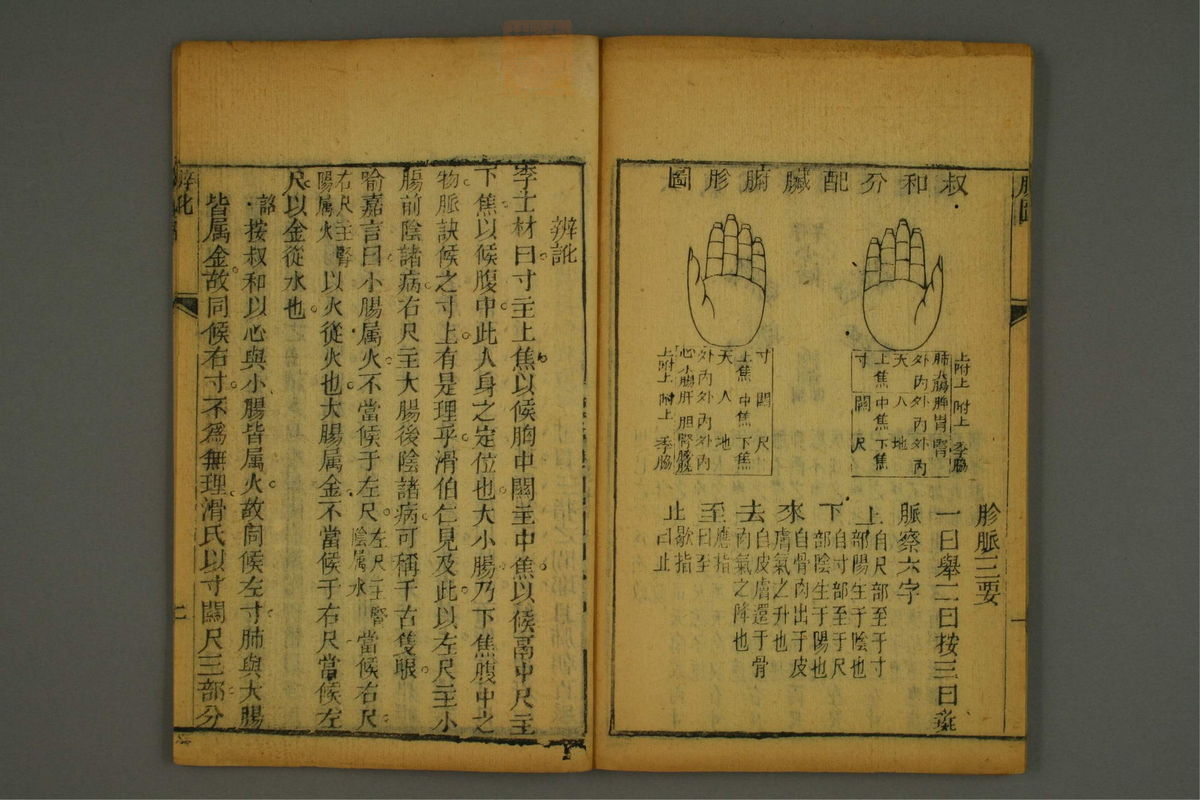 脈圖
叔和分配臟腑形圖
上附上 附上 季脇
肺大腸脾胃腎
外內外內外內
天 人 地
上焦 中焦 下焦
寸 關 尺
寸 關 尺
上焦 中焦 下焦
天 人 地
外內外內外內
心小腸肝胆腎膀胱
上附上 附上 季脇
胗脈三要
一曰舉二曰按三曰尋
脈察六字
上自尺部至于寸部陽生于陰也
下自寸部至于尺部陰生于陽也
來自骨肉出于皮膚氣之升也
去自皮膚還于骨肉氣之降也
至應指曰至
止歇指曰止
辨訛
李士材曰寸主上焦以候胸中關主中焦以候鬲中尺主
下焦以候腹中此人身之定位也大小腸乃下焦腹中之
物脈訣候之寸上有是理乎滑伯仁見及此以左尺主小
腸前陰諸病右尺主大腸後陰諸病可稱千古隻眼
喻嘉言曰小腸属火不當候于左尺左尺主腎陰属水當候右尺
右尺主腎陽属火以火從火也大腸属金不當候于右尺當候左
尺以金從水也
詺按叔和以心與小腸皆属火故同候左寸肺與大腸
皆属金故同候右寸不為無理滑氏以寸關尺三部分
辨訛
二